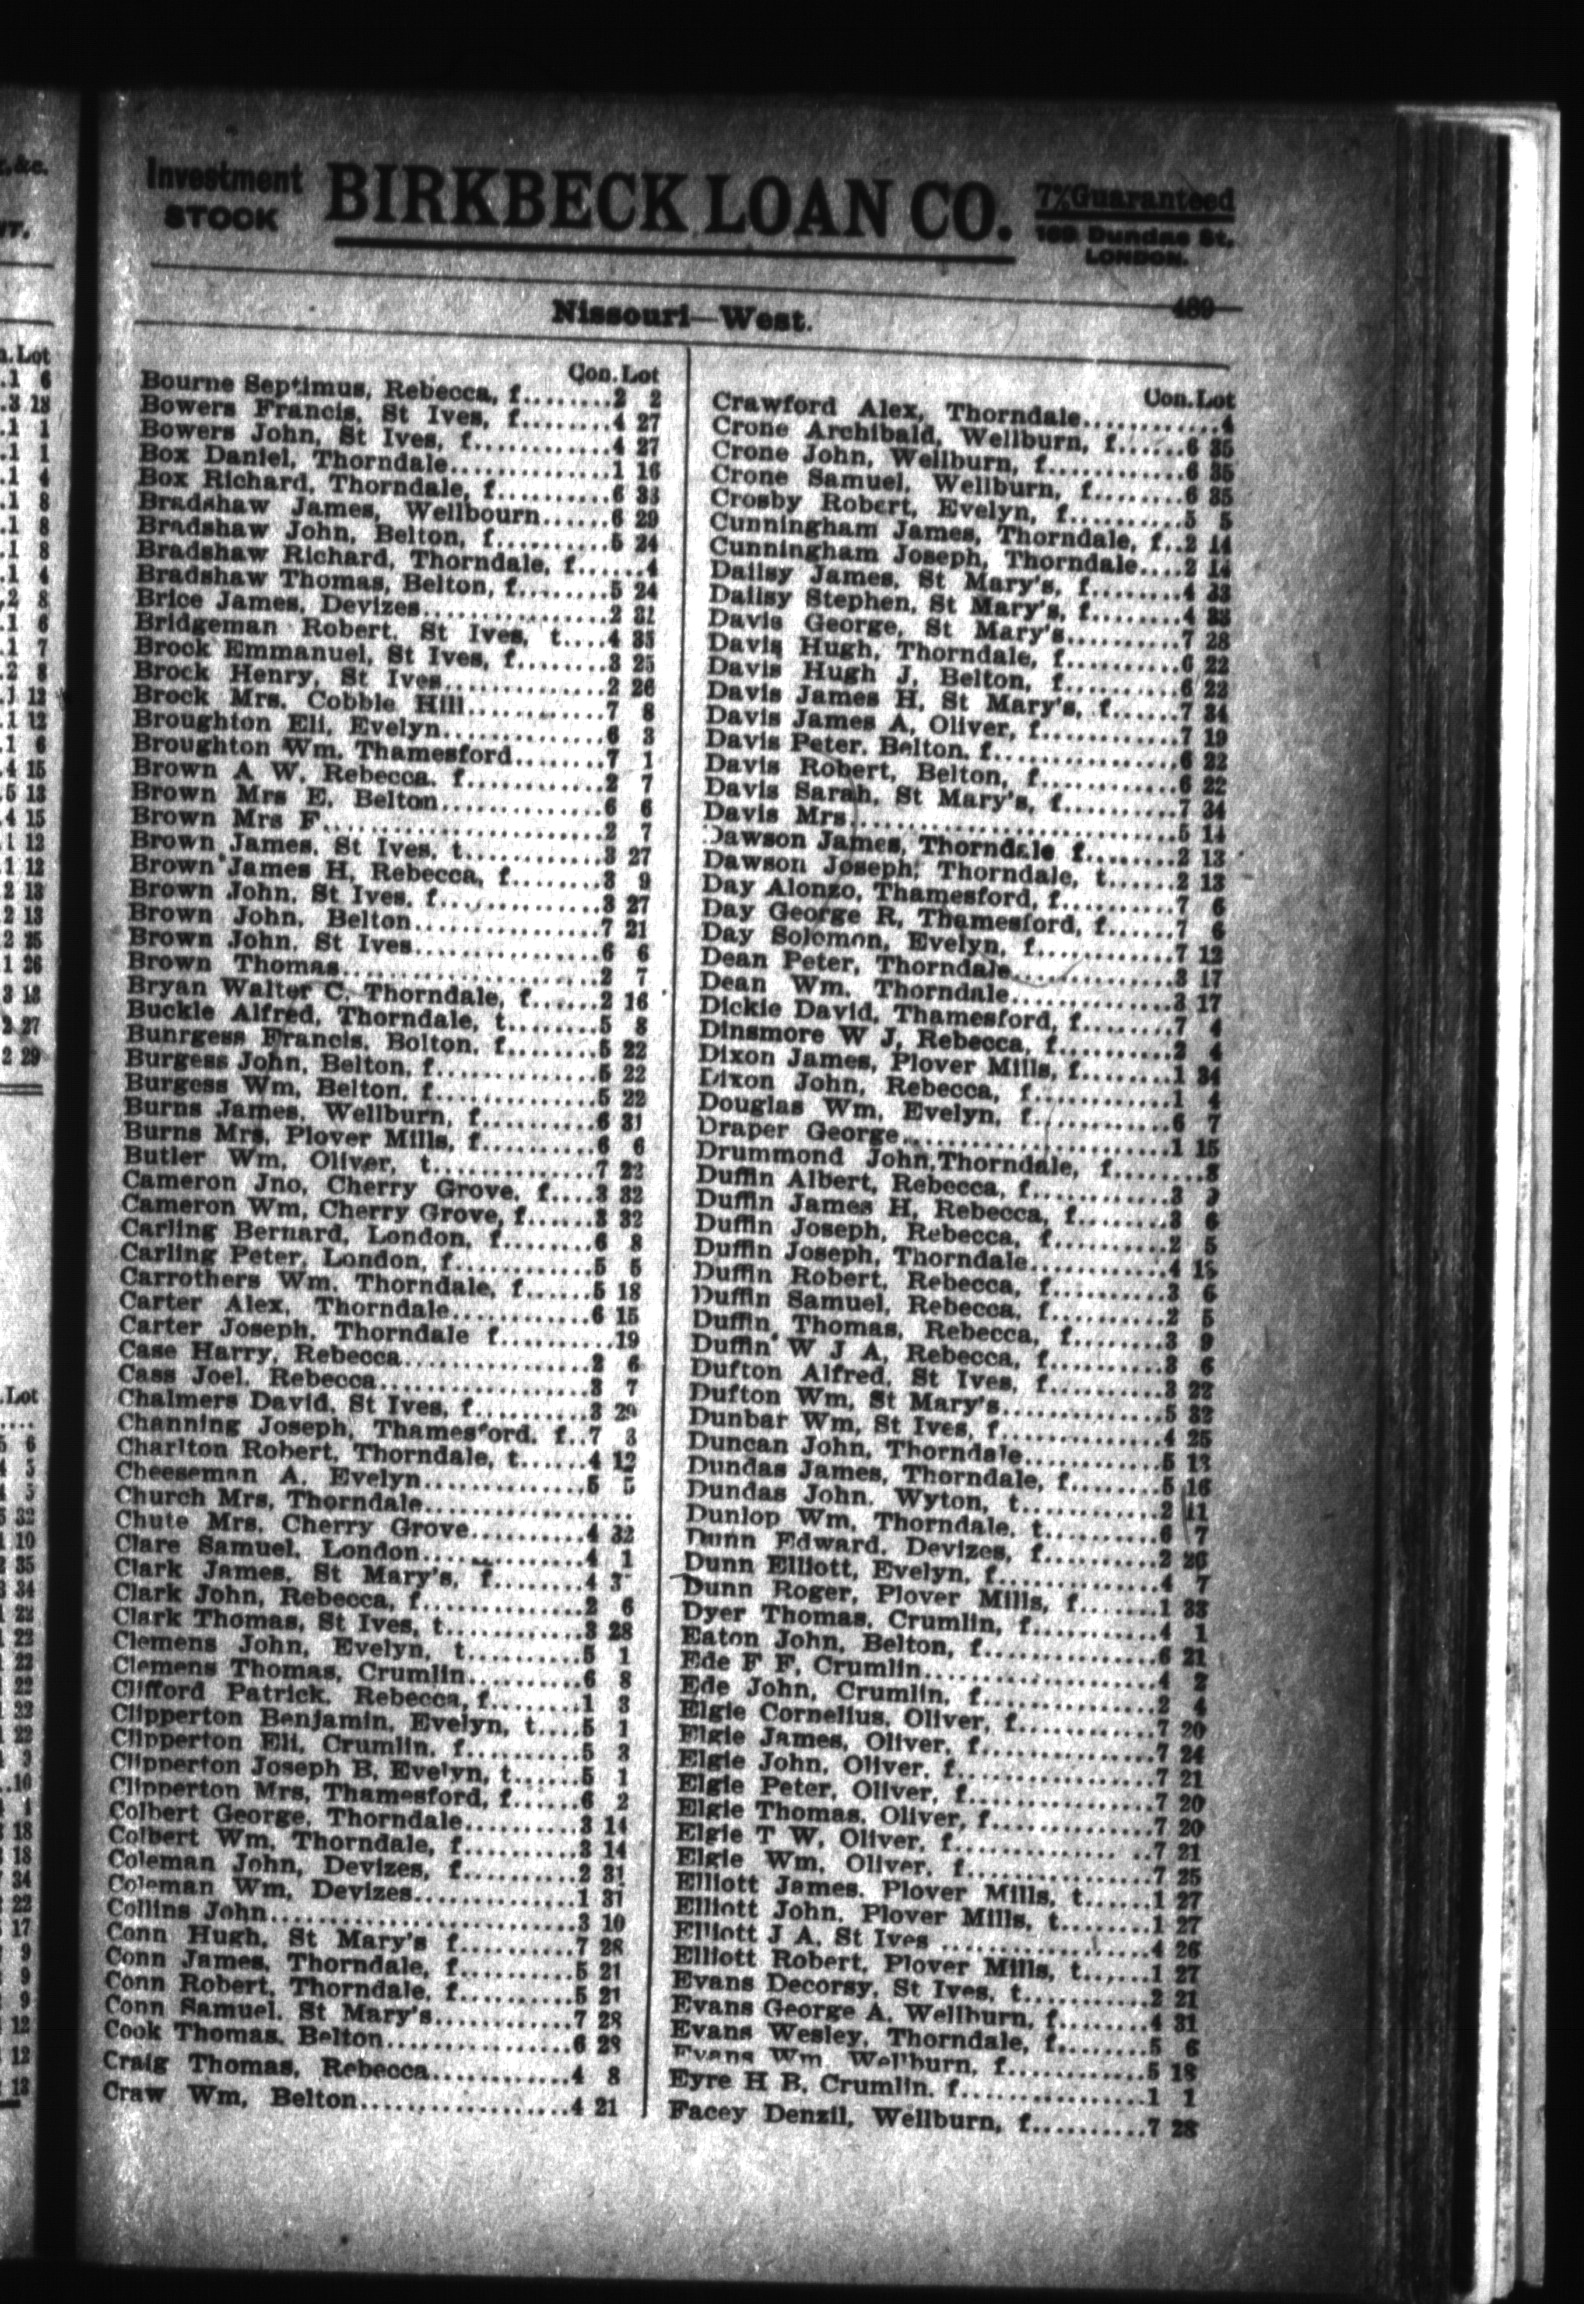 Investment
STOCK
BIRKBECK LOAN CO.
7% Guaranteed
169 Dundas St,
LONDON.
Nissouri—West. 489
Con. Lot
Bourne Septimus, Rebecca, f........2 2
Bowers Francis, St Ives, f........4 27
Bowers John, St Ives, f...........4 27
Box Daniel, Thorndale.............1 16
Box Richard, Thorndale, f.........6 33
Bradshaw James, Wellbourn......6 29
Bradshaw John, Belton, f..........5 24
Bradshaw Richard, Thorndale, f......4
Bradshaw Thomas, Belton, f........5 24
Brice James, Devizes..............2 31
Bridgeman Robert, St Ives, t....4 35
Brock Emmanuel, St Ives, f........3 25
Brock Henry, St Ives..............2 26
Brock Mrs, Cobble Hill............7 8
Broughton Eli, Evelyn.............6 3
Broughton Wm, Thamesford........7 1
Brown A W, Rebecca, f............2 7
Brown Mrs E, Belton..............6 6
Brown Mrs F......................2 7
Brown James, St Ives, t...........3 27
Brown James H, Rebecca, f........3 9
Brown John, St Ives, f............3 27
Brown John, Belton...............7 21
Brown John, St Ives..............6 6
Brown Thomas....................2 7
Bryan Walter C, Thorndale, f......2 16
Buckle Alfred, Thorndale, t........5 8
Bunrgess Francis, Bolton, f........5 22
Burgess John, Belton, f............5 22
Burgess Wm, Belton, f.............5 22
Burns James, Wellburn, f..........6 31
Burns Mrs, Plover Mills, f..........6 6
Butler Wm, Oliver, t...............7 22
Cameron Jno, Cherry Grove, f....3 32
Cameron Wm, Cherry Grove, f......3 32
Carling Bernard, London, f........6 8
Carling Peter, London, f............5 5
Carrothers Wm, Thorndale, f......5 18
Carter Alex, Thorndale............6 15
Carter Joseph, Thorndale f..........19
Case Harry, Rebecca...............2 6
Cass Joel, Rebecca.................3 7
Chalmers David, St Ives, f..........3 29
Channing Joseph, Thamesford, f..7 3
Charlton Robert, Thorndale, t......4 12
Cheeseman A, Evelyn.............5 5
Church Mrs, Thorndale....................
Chute Mrs, Cherry Grove..........4 32
Clare Samuel, London.............4 1
Clark James, St Mary's, f........4 3
Clark John, Rebecca, f.............2 6
Clark Thomas, St Ives, t...........3 28
Clemens John, Evelyn, t..........5 1
Clemens Thomas, Crumlin.........6 8
Clifford Patrick, Rebecca, f........1 3
Clipperton Benjamin, Evelyn, t....5 1
Clipperton Eli, Crumlin, f..........5 3
Clipperton Joseph B, Evelyn, t......5 1
Clipperton Mrs, Thamesford, f......6 2
Colbert George, Thorndale..........3 14
Colbert Wm, Thorndale, f..........3 14
Coleman John, Devizes, f..........2 31
Coleman Wm, Devizes.............1 31
Collins John......................3 10
Conn Hugh, St Mary's f..........7 28
Conn James, Thorndale, f..........5 21
Conn Robert, Thorndale, f..........5 21
Conn Samuel, St Mary's...........7 28
Cook Thomas, Belton...............6 28
Craig Thomas, Rebecca............4 8
Craw Wm, Belton..................4 21
Con. Lot
Crawford Alex, Thorndale............4
Crone Archibald, Wellburn, f......6 35
Crone John, Wellburn, f............6 35
Crone Samuel, Wellburn, f........6 35
Crosby Robert, Evelyn, f..........5 5
Cunningham James, Thorndale, f..2 14
Cunningham Joseph, Thorndale....2 14
Dailsy James, St Mary's, f........4 33
Dailsy Stephen, St Mary's, f........4 33
Davis George, St Mary's..........7 28
Davis Hugh, Thorndale, f..........6 22
Davis Hugh J, Belton, f..........6 22
Davis James H, St Mary's, f......7 34
Davis James A, Oliver, f............7 19
Davis Peter, Belton, f................6 22
Davis Robert, Belton, f............6 22
Davis Sarah, St Mary's, f..........7 34
Davis Mrs..........................5 14
Dawson James, Thorndale f........2 13
Dawson Joseph, Thorndale, t......2 13
Day Alonzo, Thamesford, f..........7 6
Day George R, Thamesford, f......7 6
Day Solomon, Evelyn, f............7 12
Dean Peter, Thorndale..............3 17
Dean Wm, Thorndale..............3 17
Dickie David, Thamesford, f........7 4
Dinsmore W J, Rebecca, f..........2 4
Dixon James, Plover Mills, f........1 34
Dixon John, Rebecca, f............1 4
Douglas Wm, Evelyn, f............6 7
Draper George......................1 15
Drummond John, Thorndale, f........8
Duffin Albert, Rebecca, f............3 9
Duffin James H, Rebecca, f........3 6
Duffin Joseph, Rebecca, f..........2 5
Duffin Joseph, Thorndale............4 15
Duffin Robert, Rebecca, f..........3 6
Duffin Samuel, Rebecca, f..........2 5
Duffin Thomas, Rebecca, f........3 9
Duffin W J A, Rebecca, f..........3 6
Dufton Alfred, St Ives, f............3 22
Dufton Wm, St Mary's..............5 32
Dunbar Wm, St Ives, f..............4 25
Duncan John, Thorndale............5 13
Dundas James, Thorndale, f........5 16
Dundas John, Wyton, t............2 11
Dunlop Wm, Thorndale, t..........6 7
Dunn Edward, Devizes, f..........2 26
Dunn Elliott, Evelyn, f..............4 7
Dunn Roger, Plover Mills, f........1 33
Dyer Thomas, Crumlin, f..........4 1
Eaton John, Belton, f..............6 21
Ede F F, Crumlin..................4 2
Ede John, Crumlin, f..............2 4
Elgie Cornelius, Oliver, f............7 20
Elgie James, Oliver, f..............7 24
Elgie John, Oliver, f................7 21
Elgie Peter, Oliver, f................7 20
Elgie Thomas, Oliver, f............7 20
Elgie T W, Oliver, f................7 21
Elgie Wm, Oliver, f................7 25
Elliott James, Plover Mills, t......1 27
Elliott John, Plover Mills, t........1 27
Elliott J A, St Ives ................4 26
Elliott Robert, Plover Mills, t......1 27
Evans Decorsy, St Ives, t..........2 21
Evans George A, Wellburn, f........4 31
Evans Wesley, Thorndale, f........5 6
Evans Wm, Wellburn, f............5 18
Eyre H B, Crumlin, f..............1 1
Facey Denzil, Wellburn, f..........7 28